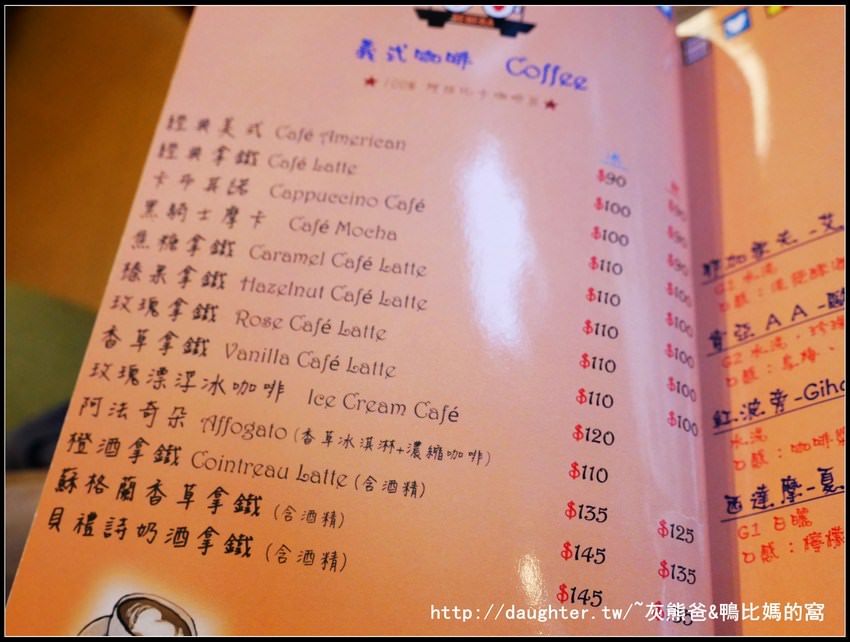 義式咖啡 Coffee
★100% 阿拉比卡咖啡豆★
冰 熱
經典美式 Café American $90
經典拿鐵 Café Latte $100 $90
卡布其諾 Cappuccino Café $100 $90
黑騎士摩卡 Café Mocha $110 $90
焦糖拿鐵 Caramel Café Latte $110 $100
榛果拿鐵 Hazelnut Café Latte $110 $100
玫瑰拿鐵 Rose Café Latte $110 $100
香草拿鐵 Vanilla Café Latte $110 $100
玫瑰漂浮冰咖啡 Ice Cream Café $120
阿法奇朵 Affogato (香草冰淇淋+濃縮咖啡) $110
橙酒拿鐵 Cointreau Latte (含酒精) $135 $125
蘇格蘭香草拿鐵 (含酒精) $145 $135
貝禮詩奶酒拿鐵 (含酒精) $145
耶加雪夫 -艾
G1 水洗
口感：
肯亞 A A -
G2 水洗，
口感：
紅波旁-Giha
水洗
口感：咖啡
西達摩-夏
G1 日曬
口感：檸檬
http://daughter.tw/~灰熊爸&鴨比媽的窩